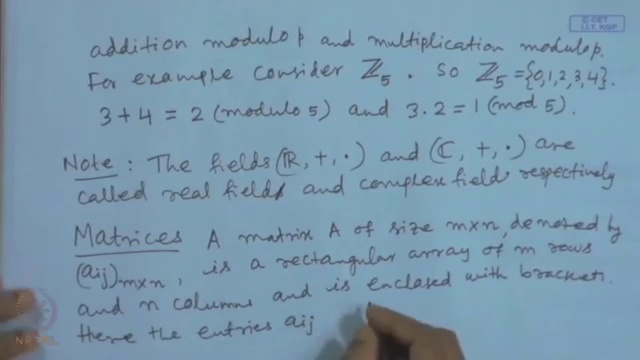 © CET
I.I.T. KGP
addition modulo p and multiplication modulo p.
For example consider ℤ₅. So ℤ₅ = {0,1,2,3,4}.
3+4 = 2 (modulo 5) and 3.2 = 1 (mod 5).
Note : The fields (ℝ, +, ·) and (ℂ, +, ·) are
called real field and complex field respectively
Matrices A matrix A of size m×n, denoted by
(aij)m×n, is a rectangular array of m rows
and n columns and is enclosed with brackets.
Here the entries aij